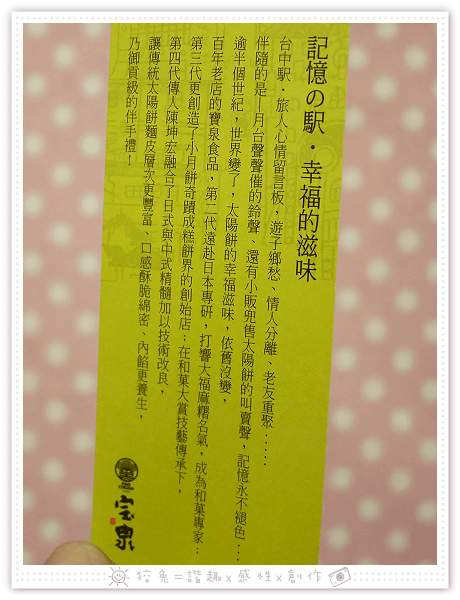 記憶の駅．幸福的滋味
台中駅．旅人心情留言板，遊子鄉愁、情人分離、老友重聚‥‥‥
伴隨的是—月台聲聲催的鈴聲、還有小販兜售太陽餅的叫賣聲，記憶永不褪色…
逾半個世紀，世界變了，太陽餅的幸福滋味，依舊沒變，
百年老店的寶泉食品，第二代遠赴日本專研，打響大福麻糬名氣，成為和菓專家；
第三代更創造了小月餅奇蹟成糕餅界的創始店；在和菓大賞技藝傳承下，
第四代傳人陳坤宏融合了日式與中式精髓加以技術改良，
讓傳統太陽餅麵皮層次更豐富、口感酥脆綿密、內餡更養生，
乃御貢級的伴手禮！
宝泉
狡兔=諧趣x感性x創作